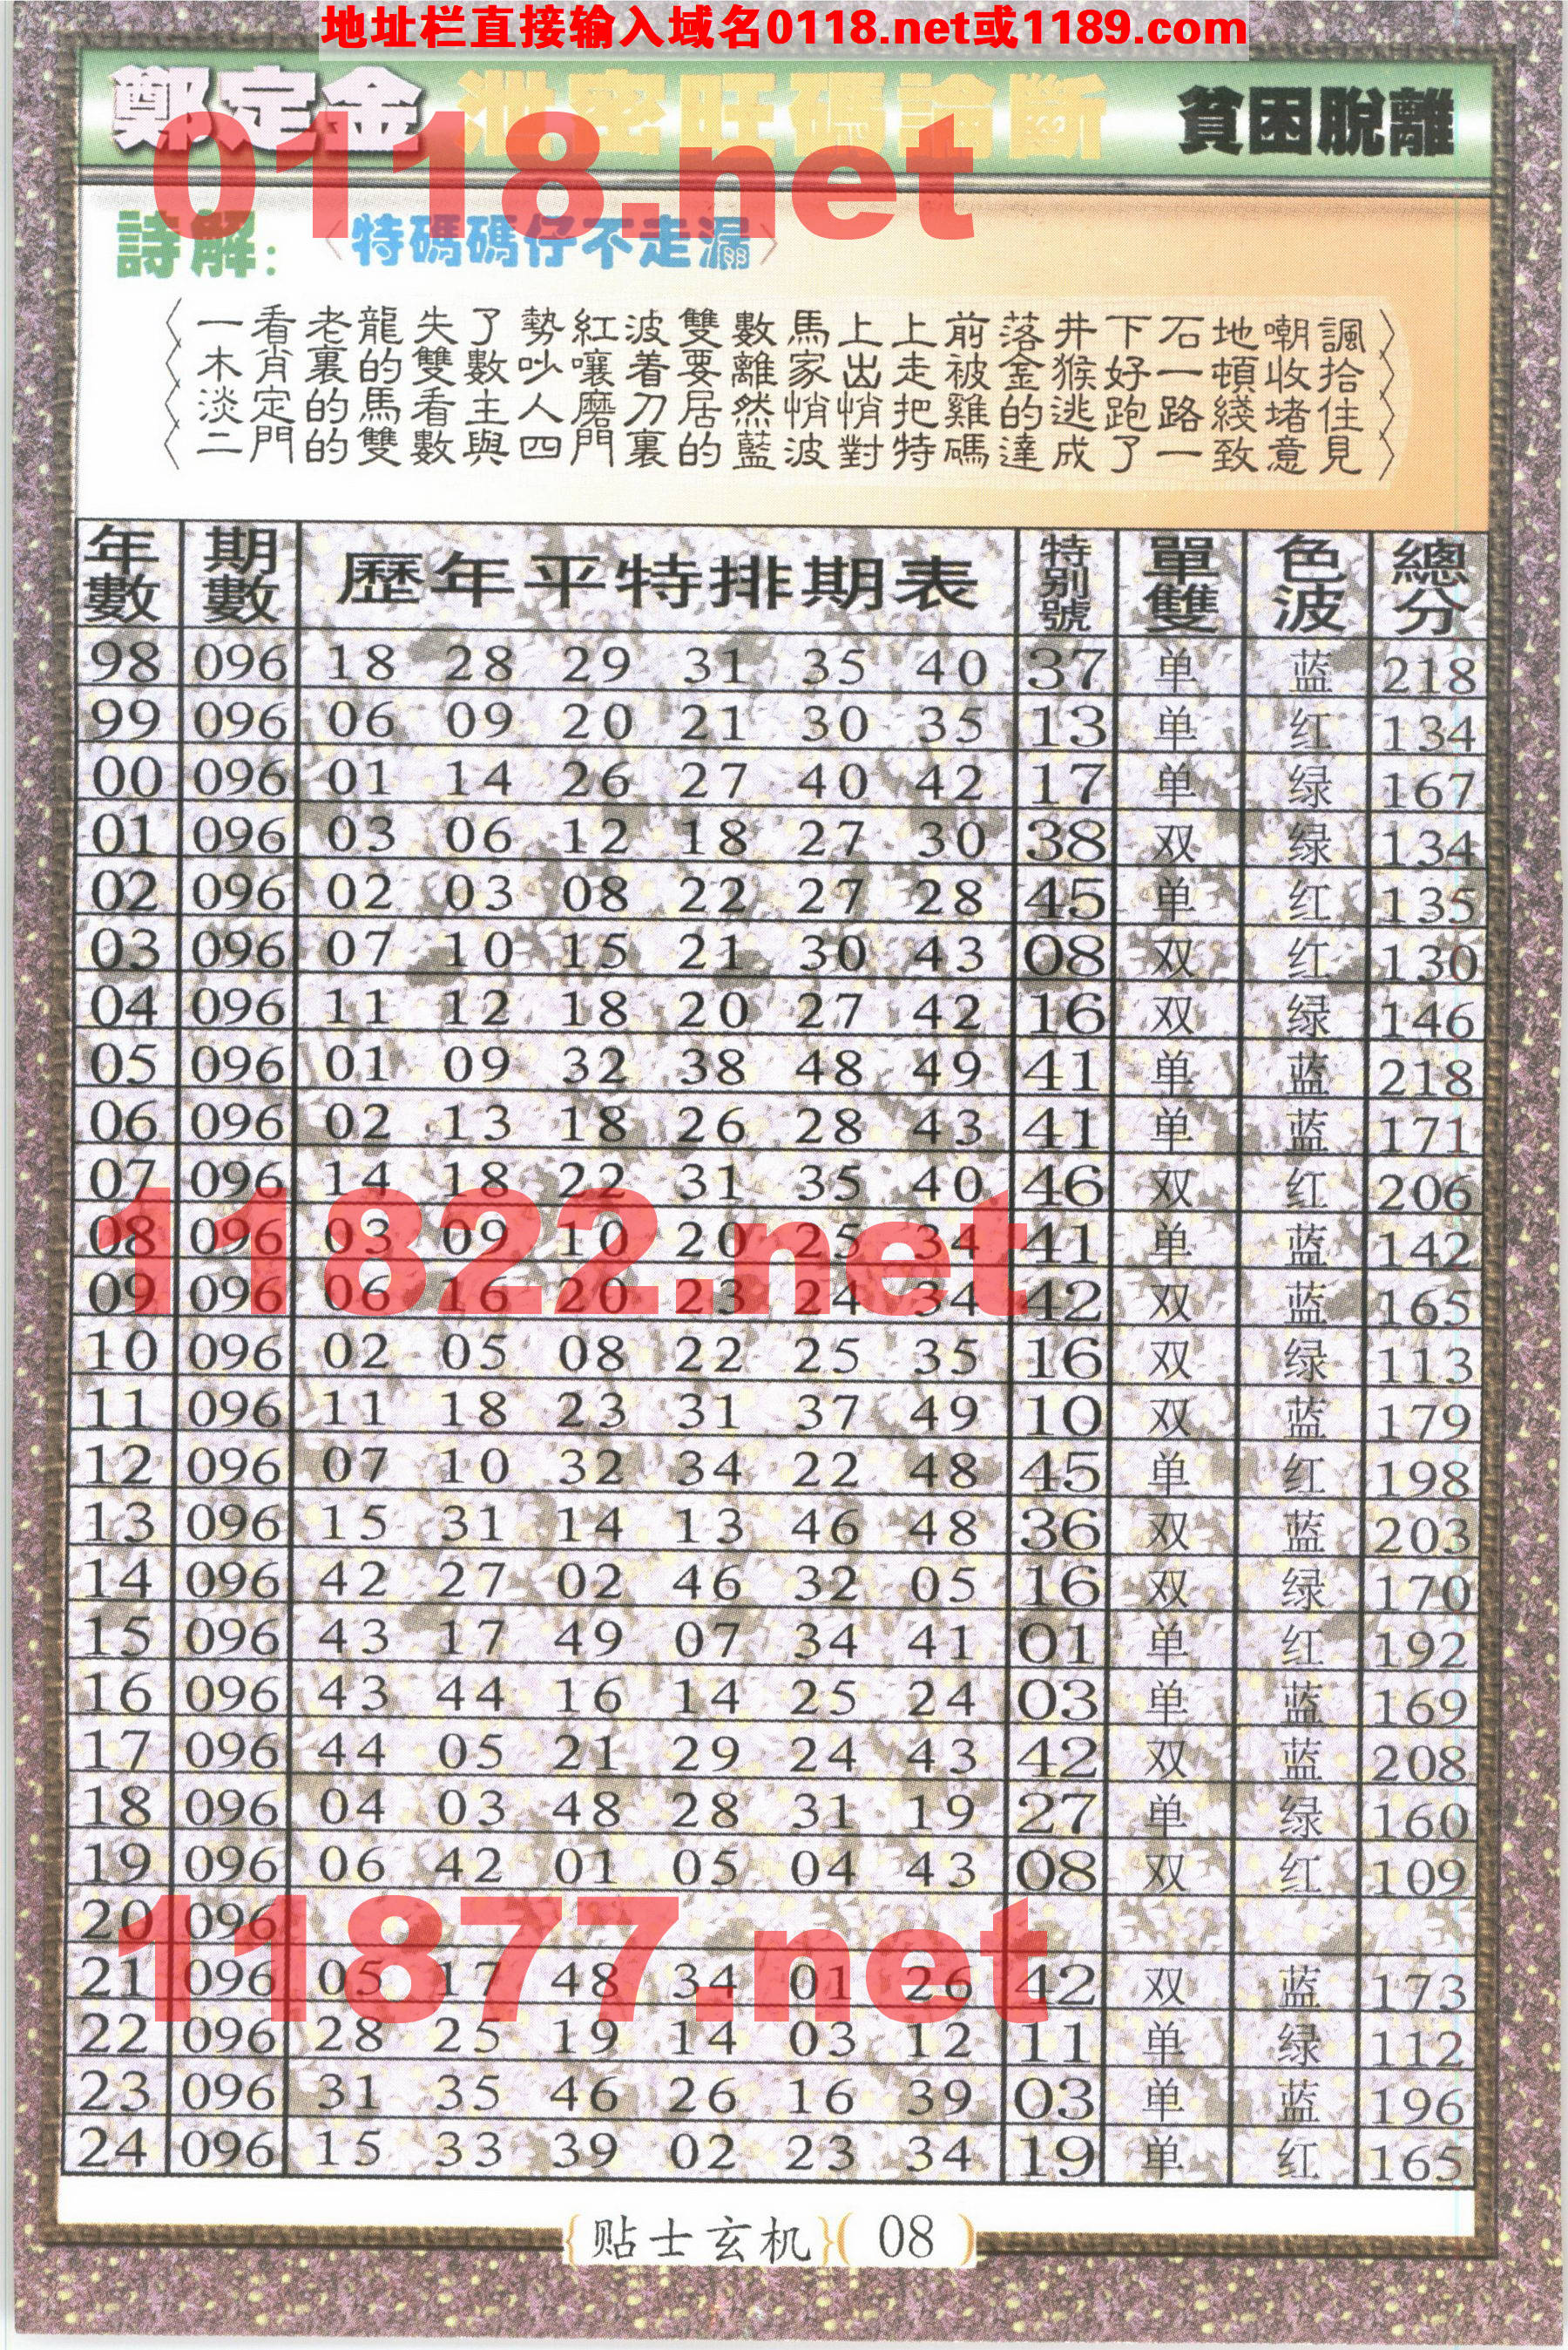 地址栏直接输入域名0118.net或1189.com
鄭定金 泄密旺碼論斷 貧困脫離
0118.net
詩解: 〈特碼碼仔不走漏〉
〈一看老龍失了勢紅波雙數馬上上前落井下石地嘲諷〉
〈木肖裏的雙數吵嚷着要離家出走被金猴好一頓收拾〉
〈淡定的馬看主人磨刀居然悄悄把雞的逃跑路綫堵住〉
〈二門的雙數與四門裏的藍波對特碼達成了一致意見〉
年數 期數 歷年平特排期表 特别號 單雙 色波 總分
98 096 18 28 29 31 35 40 37 单 蓝 218
99 096 06 09 20 21 30 35 13 单 红 134
00 096 01 14 26 27 40 42 17 单 绿 167
01 096 03 06 12 18 27 30 38 双 绿 134
02 096 02 03 08 22 27 28 45 单 红 135
03 096 07 10 15 21 30 43 08 双 红 130
04 096 11 12 18 20 27 42 16 双 绿 146
05 096 01 09 32 38 48 49 41 单 蓝 218
06 096 02 13 18 26 28 43 41 单 蓝 171
07 096 14 18 22 31 35 40 46 双 红 206
08 096 03 09 10 20 25 34 41 单 蓝 142
11822.net
09 096 06 16 20 23 24 34 42 双 蓝 165
10 096 02 05 08 22 25 35 16 双 绿 113
11 096 11 18 23 31 37 49 10 双 蓝 179
12 096 07 10 32 34 22 48 45 单 红 198
13 096 15 31 14 13 46 48 36 双 蓝 203
14 096 42 27 02 46 32 05 16 双 绿 170
15 096 43 17 49 07 34 41 01 单 红 192
16 096 43 44 16 14 25 24 03 单 蓝 169
17 096 44 05 21 29 24 43 42 双 蓝 208
18 096 04 03 48 28 31 19 27 单 绿 160
19 096 06 42 01 05 04 43 08 双 红 109
20 096
11877.net
21 096 05 17 48 34 01 26 42 双 蓝 173
22 096 28 25 19 14 03 12 11 单 绿 112
23 096 31 35 46 26 16 39 03 单 蓝 196
24 096 15 33 39 02 23 34 19 单 红 165
{贴士玄机}( 08 )